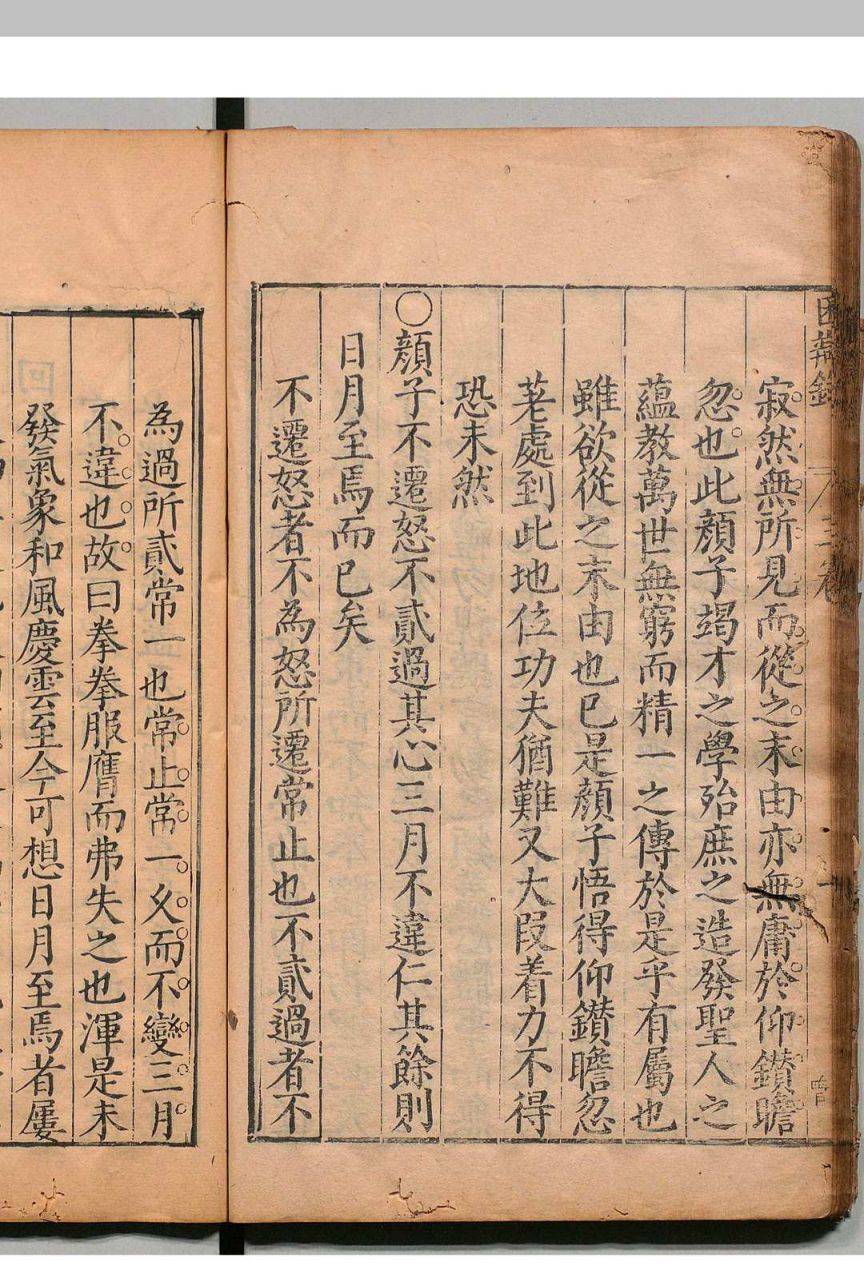 困辨錄 三卷
寂然無所見而從之末由亦無庸於仰鑚瞻
忽也此顔子竭才之學殆庶之造發聖人之
蘊教萬世無窮而精一之傳於是乎有屬也
雖欲從之末由也已是顔子悟得仰鑚瞻忽
茖處到此地位功夫猶難又大叚着力不得
恐未然
○顔子不遷怒不貳過其心三月不違仁其餘則
日月至焉而已矣
不遷怒者不為怒所遷常止也不貳過者不
為過所貳常一也常止常一久而不變三月
不違也故曰拳拳服膺而弗失之也渾是未
發氣象和風慶雲至今可想日月至焉者屢